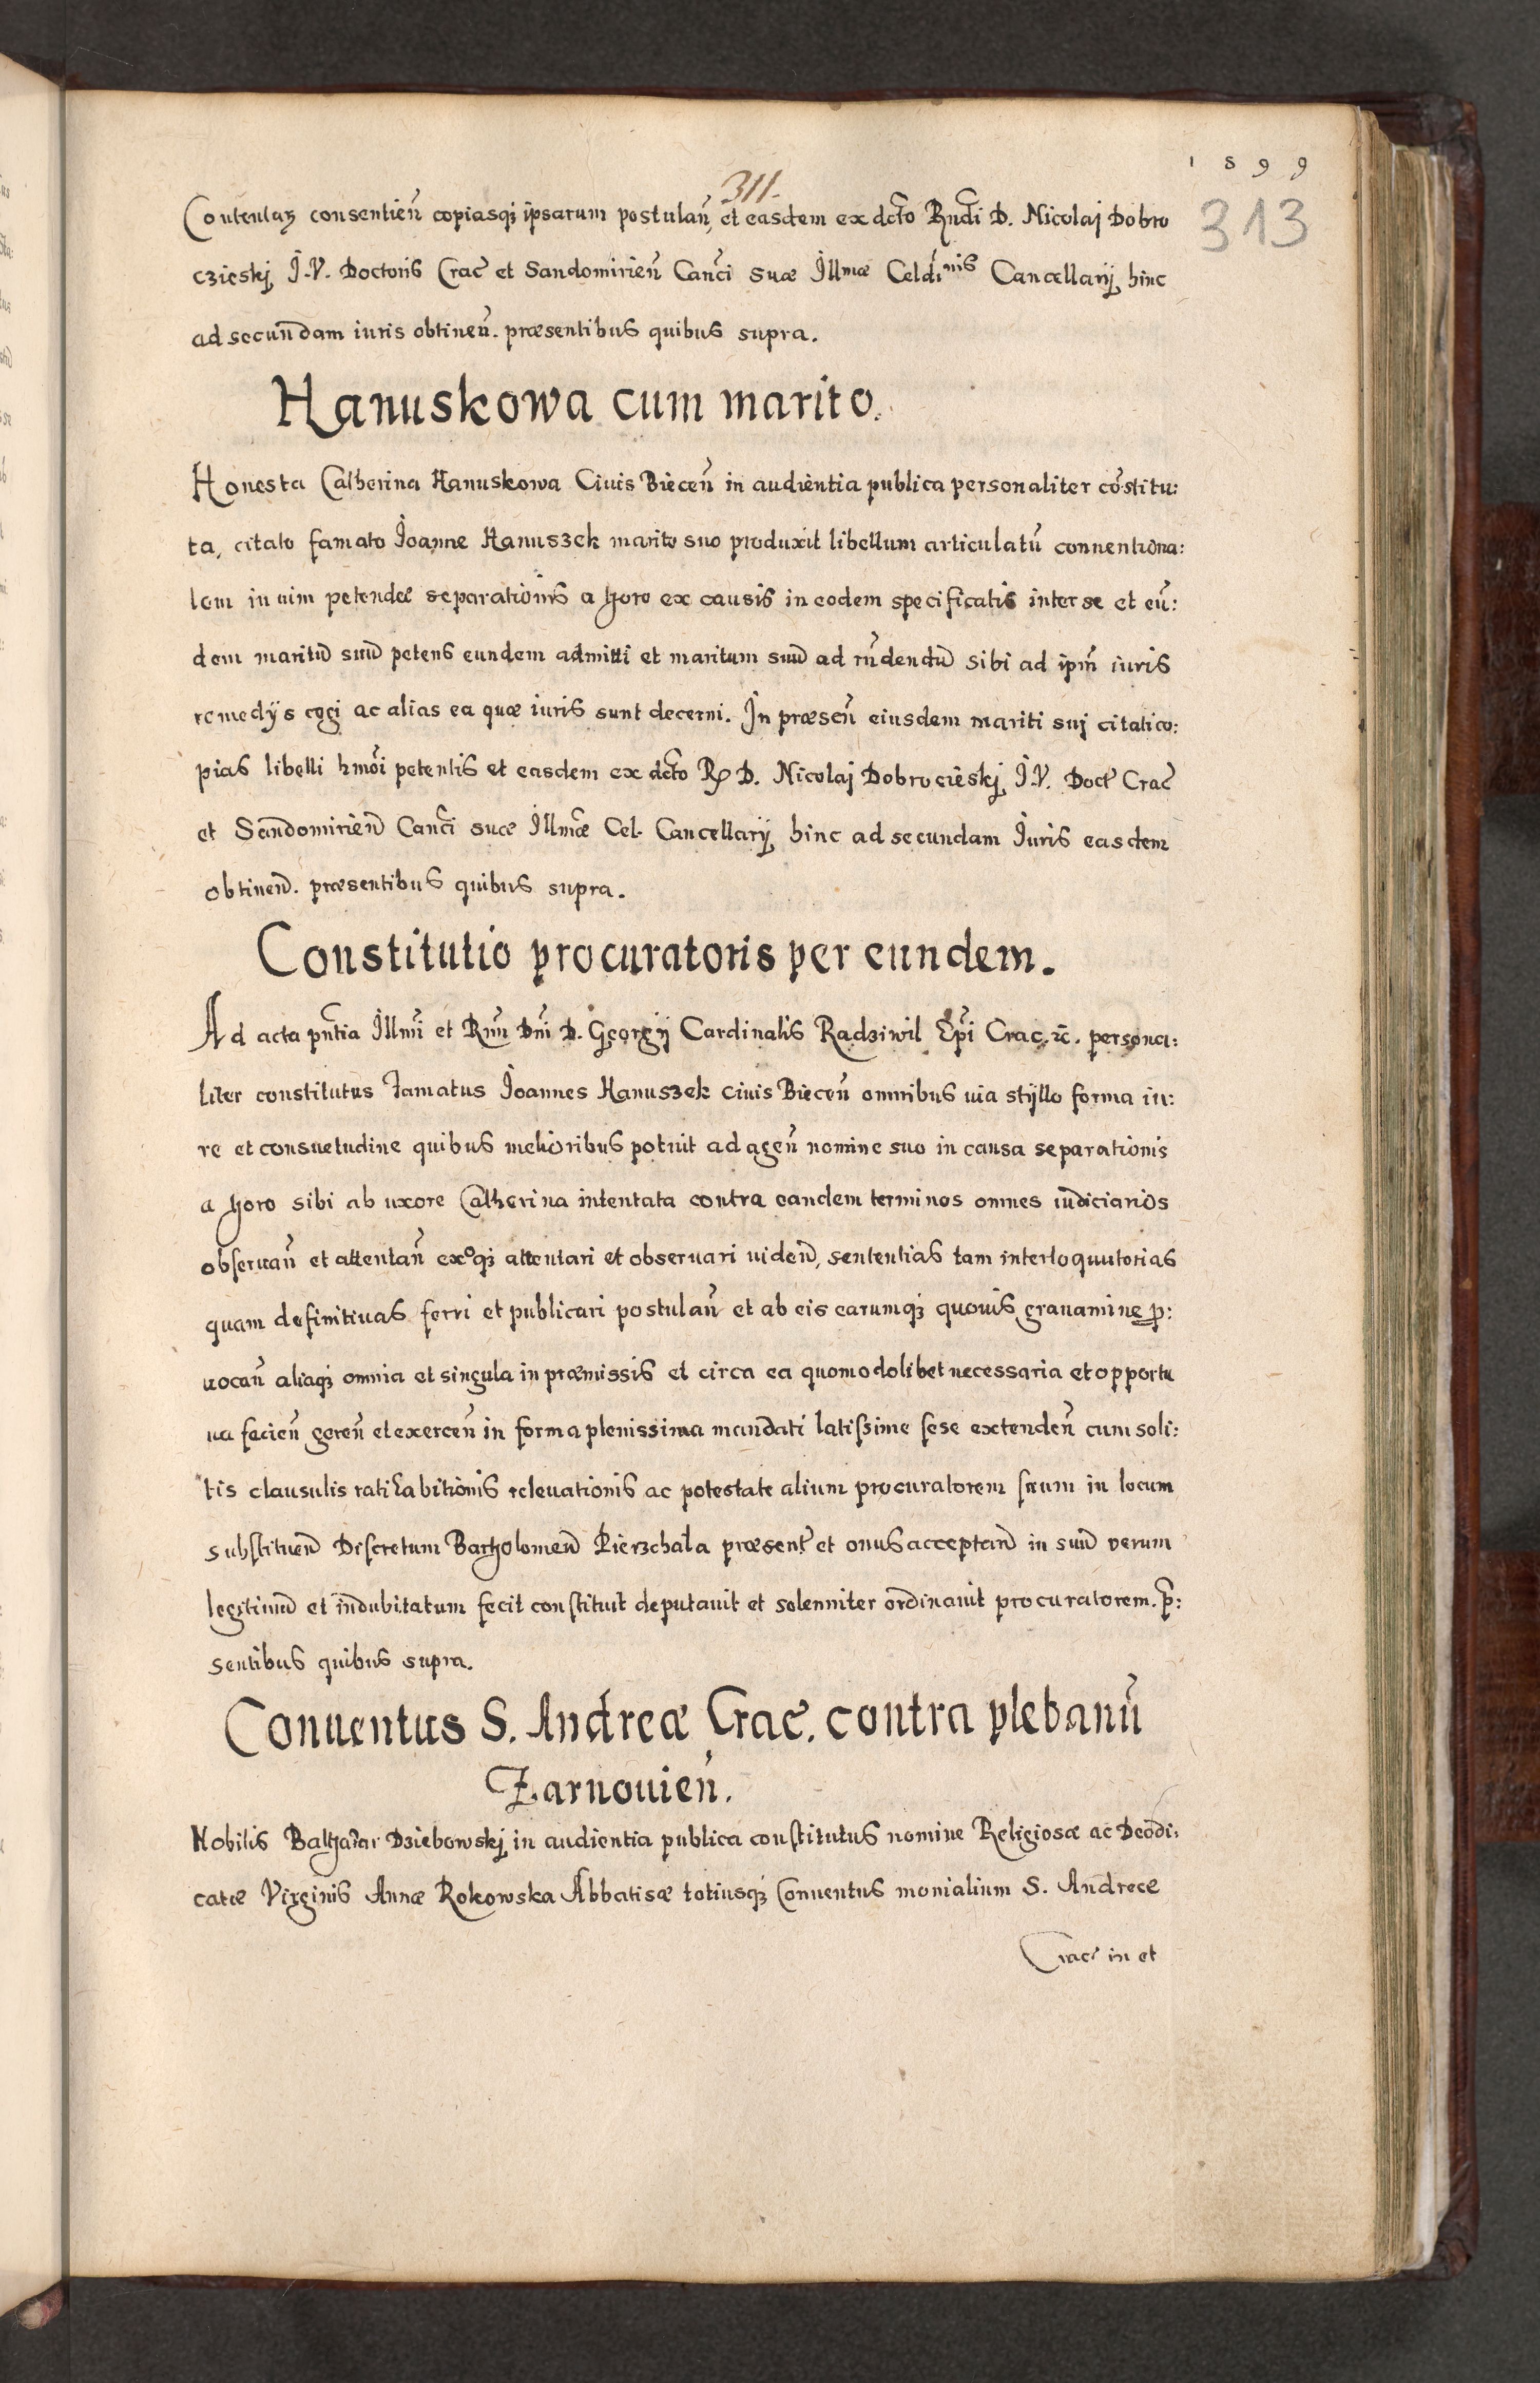 1599
311.
313
Contentar consentien̄ copiasqȝ ipsarum postulan̄, et easdem ex dcto Rndi D. Nicolaj Dobro
czieskj J.V. Doctoris Crac et Sandomirien̄ Canci suæ Illmæ Celdinis Cancellarij hinc
ad secundam iuris obtinen̄. præsentibus quibus supra.
Hanuskowa cum marito.
Honesta Catherina Hanuskowa Ciuis Biecen̄ in audientia publica personaliter cōstitu:
ta, citato famato Joanne Hanuszek marito suo produxit libellum articulatū conuentiona:
lem in uim petendæ separationis a thoro ex causis in eodem specificatis inter se et eū:
dem maritū suū petens eundem admitti et maritum suū ad rn̄dendū sibi ad ipm̄ iuris
remedijs cogi ac alias ea quæ iuris sunt decerni. In præsen̄ eiusdem mariti suj citati co:
pias libelli hmōi petentis et easdem ex dcto R D. Nicolaj Dobrocieskj J.V. Doct Crac
et Sandomirien̄ Canci suæ Illmæ Cel. Cancellarij hinc ad secundam Iuris easdem
obtinen̄. præsentibus quibus supra.
Constitutio procuratoris per eundem.
Ad acta pn̄tia Illmi et Rmi Dni D. Georgij Cardinalis Radziwil Epi Crac. ꝛc. persona:
liter constitutus Famatus Joannes Hanuszek ciuis Biecen̄ omnibus uia stÿllo forma iu:
re et consuetudine quibus melioribus potuit ad agen̄ nomine suo in causa separationis
a thoro sibi ab uxore Catherina intentata contra eandem terminos omnes iudiciarios
obseruan̄ et attentan̄ exoqȝ attentari et obseruari uiden̄, sententias tam interloquutorias
quam definitiuas ferri et publicari postulan̄ et ab eis earumqȝ quouis grauamine p:
uocan̄ aliaqȝ omnia et singula in præmissis et circa ea quomodolibet necessaria et opportu
na facien̄ geren̄ et exercen̄ in forma plenissima mandati latissime sese extenden̄ cum soli:
tis clausulis ratihabitionis releuationis ac potestate alium procuratorem suum in locum
substituen̄ Discretum Bartholomeū Pierzchala præsent et onus acceptan̄ in suū verum
legitimū et indubitatum fecit constituit deputauit et solenniter ordinauit procuratorem. p̄:
sentibus quibus supra.
Conuentus S. Andreæ Crac. contra plebanū
Zarnouien̄.
Nobilis Balthazar Dziebowskj in audientia publica constitutus nomine Religiosæ ac Deodi:
catæ Virginis Annæ Rokowska Abbatisæ totiusqȝ Conuentus monialium S. Andreæ
Crac in et